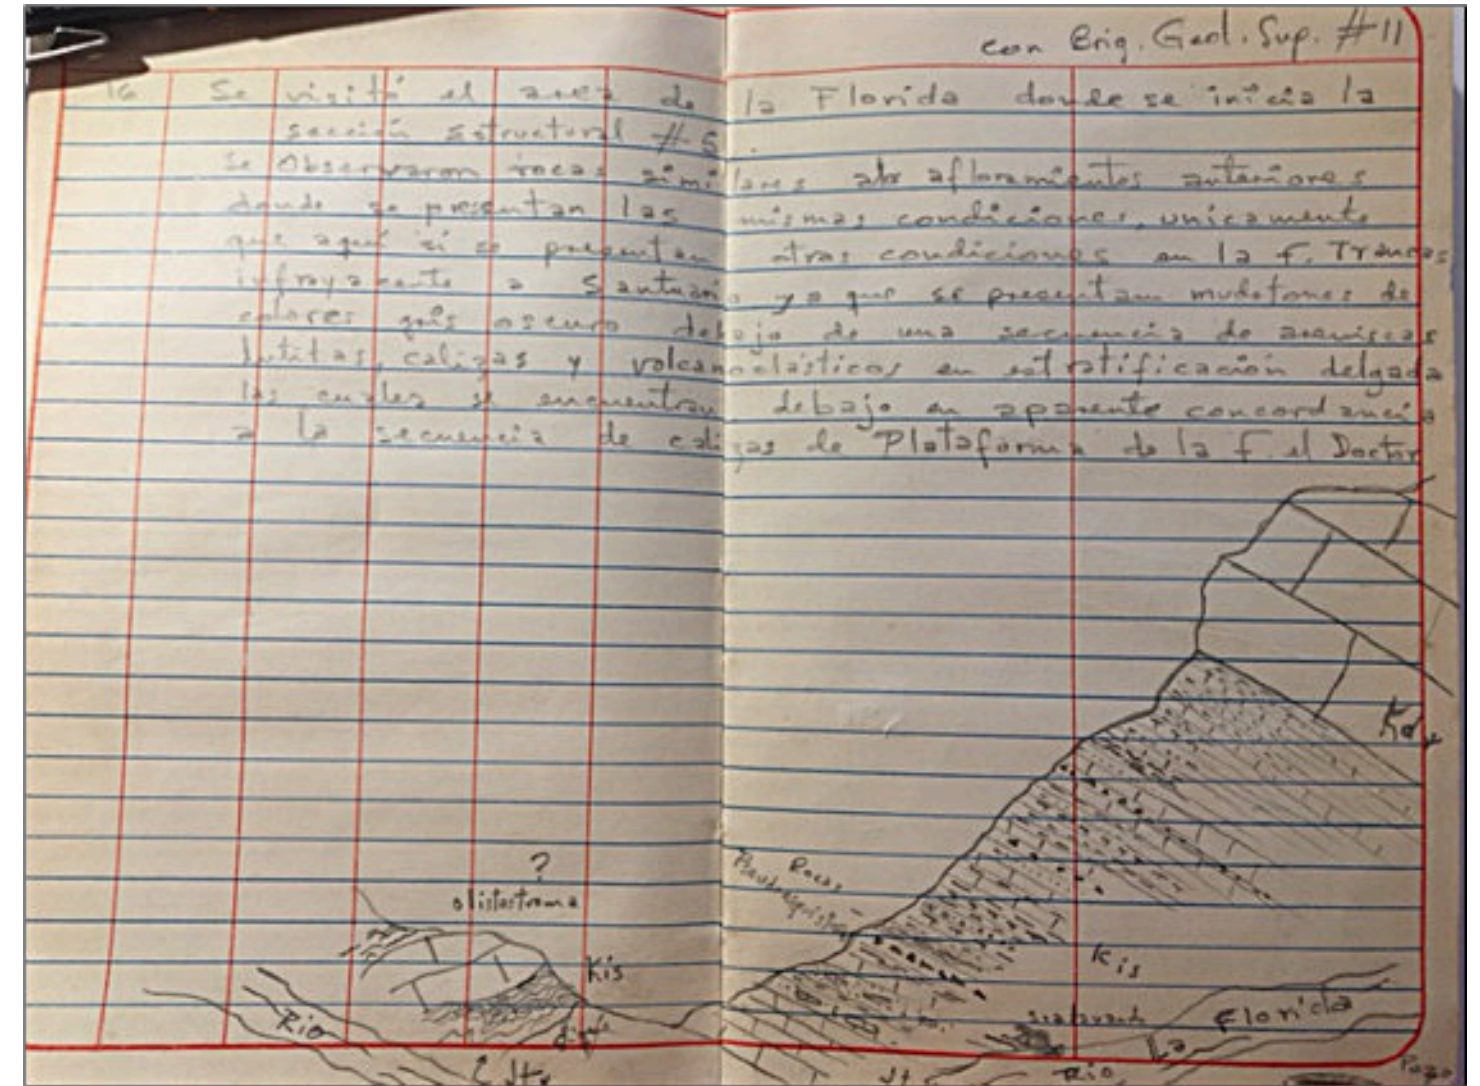 con Brig. Geol. Sup. #11
16 Se visitó el area de la Florida donde se inicia la
sección estructural #5.
se Observaron rocas similares a los afloramientos anteriores
donde se presentan las mismas condiciones, unicamente
que aquí si se presentan otras condiciones en la f. Trancas
infrayacente a Santuario ya que se presentan mudstones de
colores gris oscuro debajo de una secuencia de areniscas
lutitas, calizas y volcanoclásticos en estratificación delgada
las cuales se encuentran debajo en aparente concordancia
a la secuencia de calizas de Plataforma de la f. el Doctor
Kdy
?
olistostroma
Rocas
Kis
Kis
Florida
La
Rio
dique
Rio
Pozo